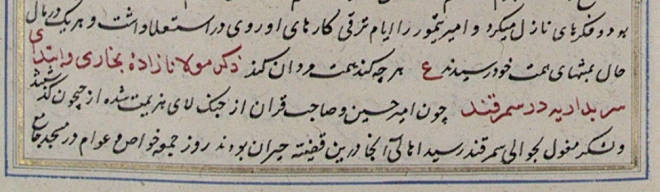 بود و فکرهای نازل میکرد و امیر تیمور را ایام ترقی کارهای او روی در استعلا داشت و هر یک در مآل
حال بمنتهای همت خود رسیدند ع هر چه کند همت مردان کند ذکر مولانا زاده بخاری و ابتدای
سربداریه در سمرقند چون امیر حسین و صاحب قران از جنک لای هزیمت شده از جیحون کذشتند
و لشکر مغول بحوالی سمرقند رسید اهالی آنجا درین قضیه حیران بودند روز جمعه خواص و عوام در مسجد جامع